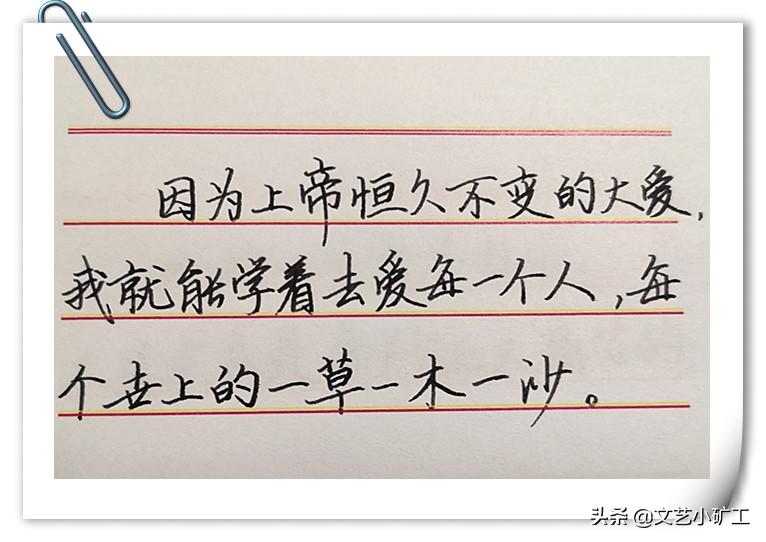 因为上帝恒久不变的大爱，
我就能学着去爱每一个人，每
个世上的一草一木一沙。
头条 @文艺小矿工